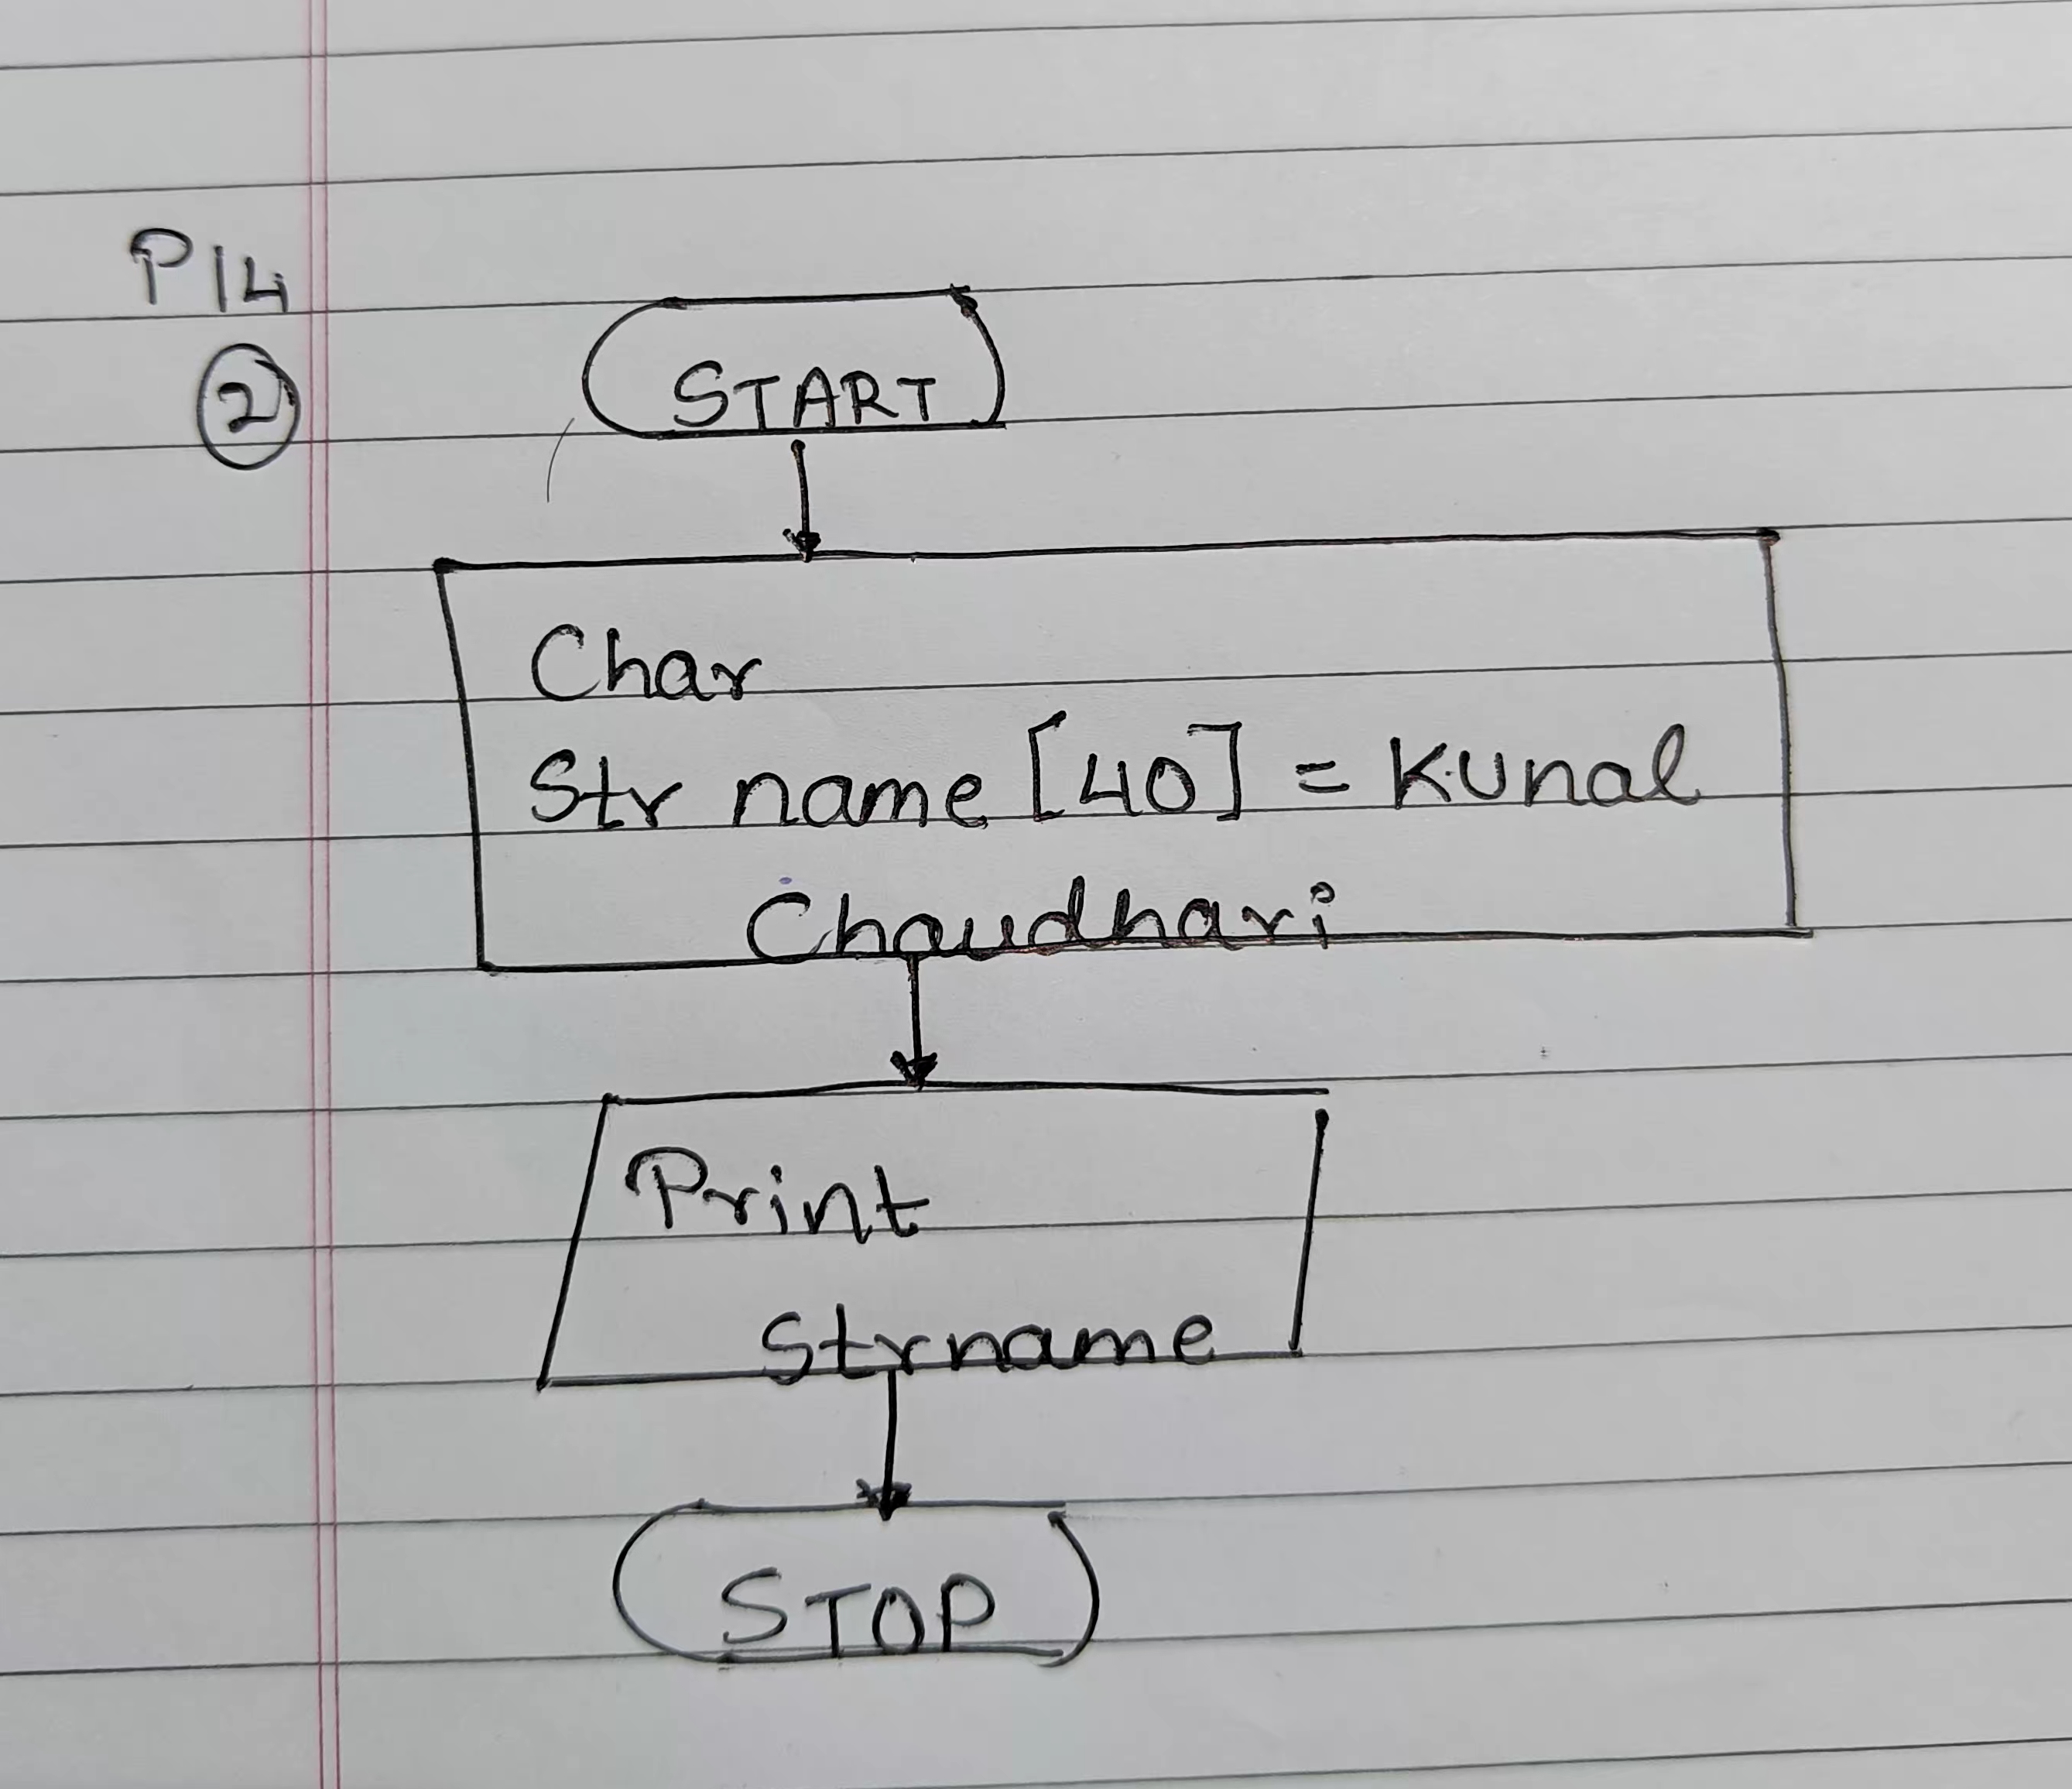 P14
2
START
Char
Str name [40] = Kunal
Chaudhari
Print
Strname
STOP